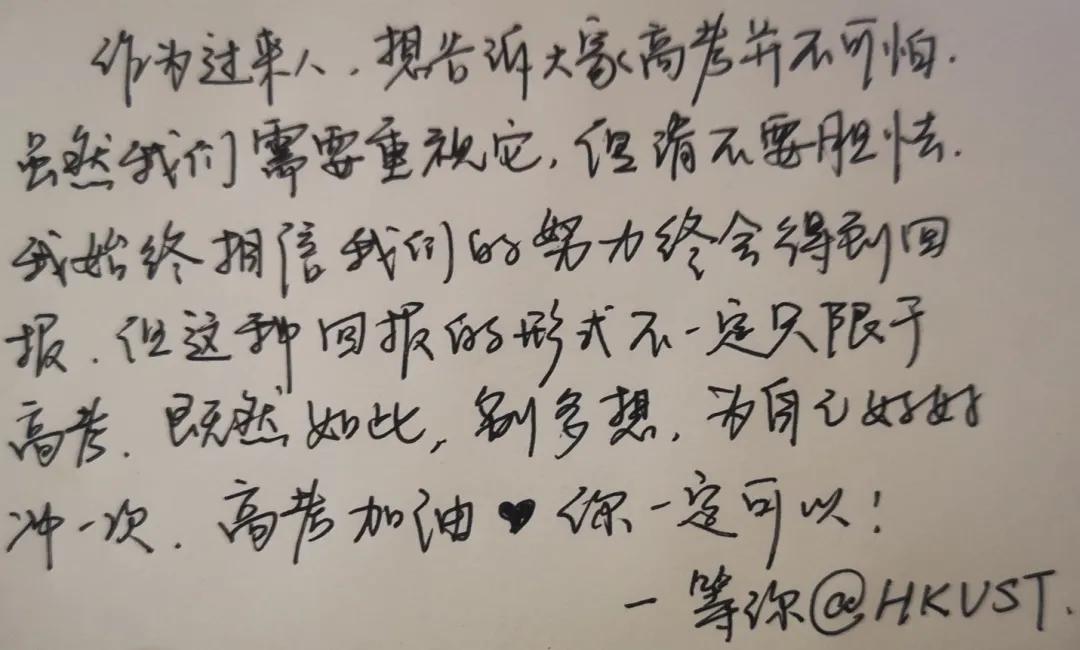 作为过来人，想告诉大家高考并不可怕.
虽然我们需要重视它，但请不要胆怯.
我始终相信我们的努力终会得到回
报.但这种回报的形式不一定只限于
高考.既然如此，别多想，为自己好好
冲一次.高考加油♥你一定可以！
—等你@HKUST.